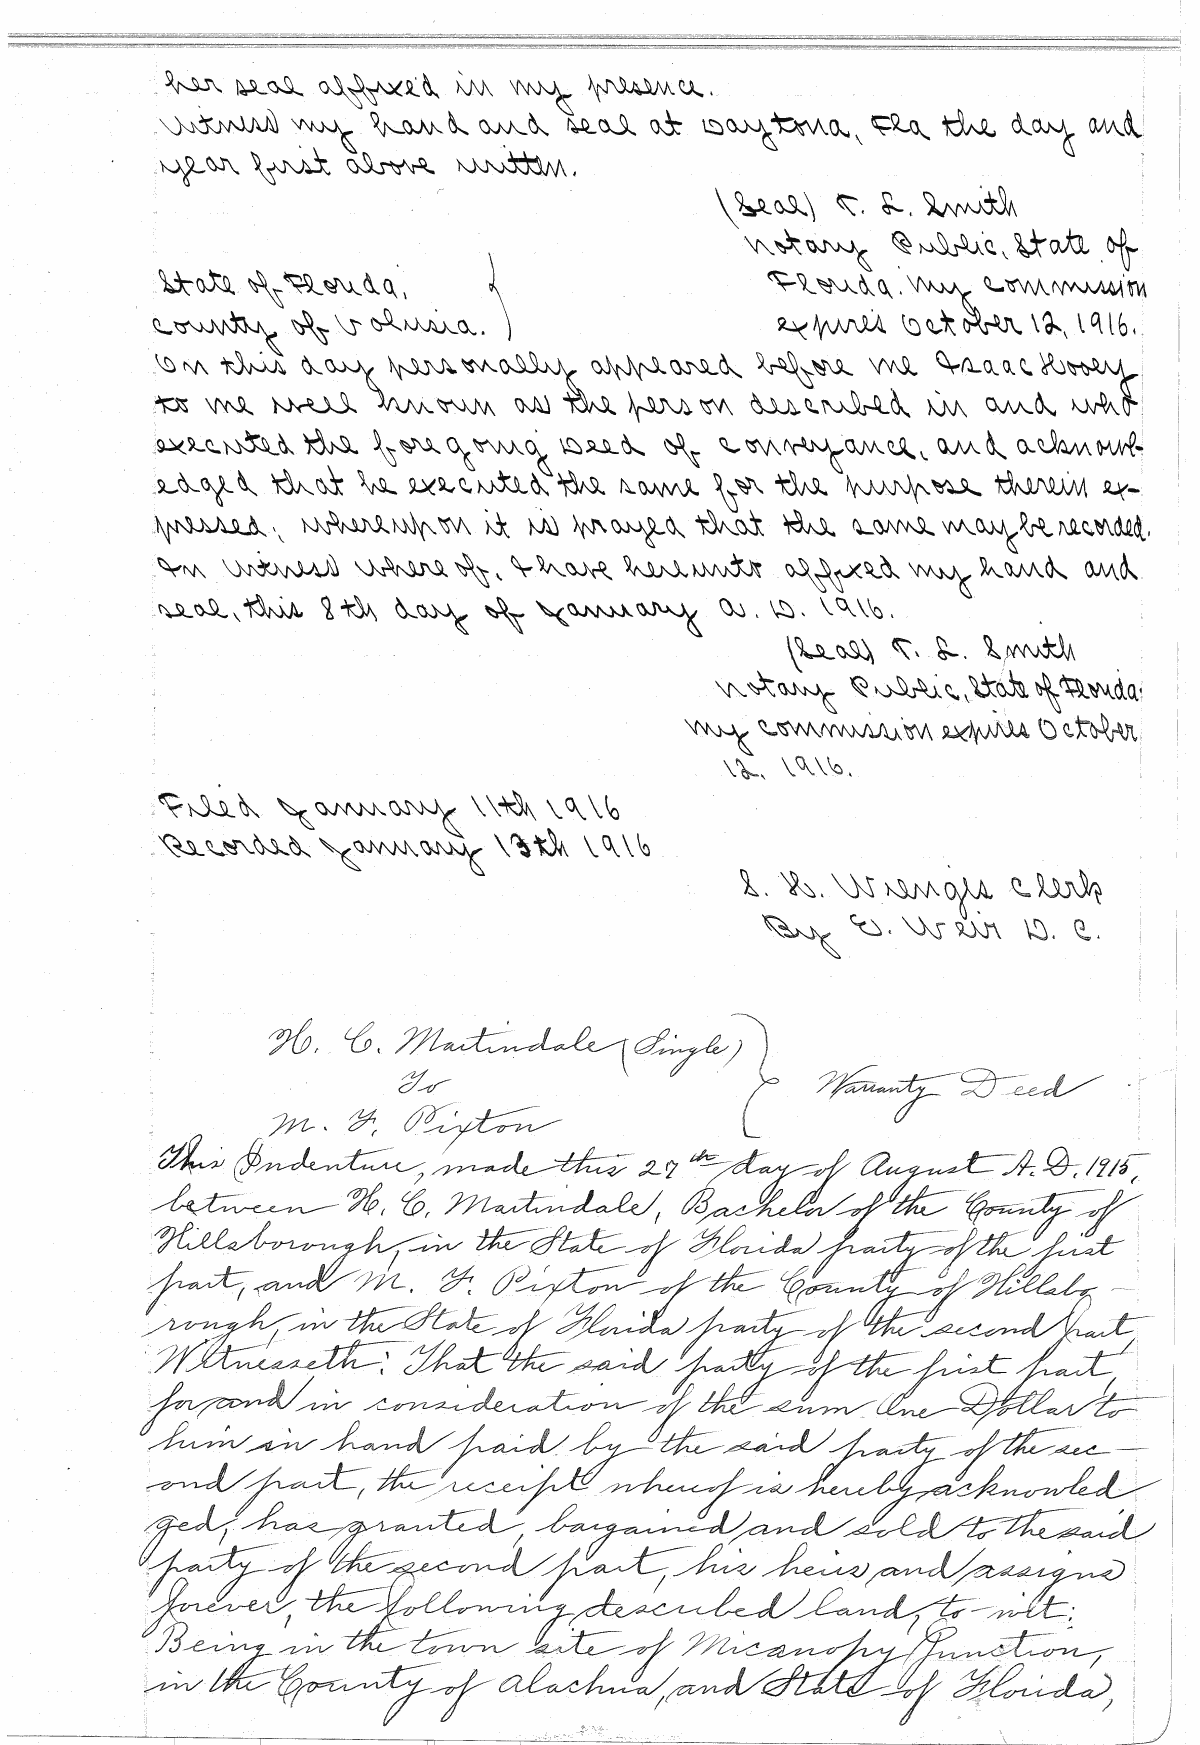 her seal affixed in my presence.
Witness my hand and seal at Daytona, Fla the day and
year first above written.
(Seal) T. L. Smith
Notary Public, State of
State of Florida,
Florida. My commission
County of Volusia.
expires October 12, 1916.
On this day personally appeared before me Isaac Hovey
to me well known as the person described in and who
executed the foregoing Deed of conveyance, and acknowl-
edged that he executed the same for the purpose therein ex-
pressed; whereupon it is prayed that the same may be recorded.
In Witness where of, I have hereunto affixed my hand and
seal, this 8th day of January A. D. 1916.
(Seal) T. L. Smith
Notary Public, State of Florida.
My commission expires October
12, 1916.
Filed January 11th 1916
Recorded January 13th 1916
S. H. Wienges Clerk
By E. Weir D. C.
H. C. Martindale (Single)
To
Warranty Deed
M. F. Pixton
This Indenture, made this 27th day of August A. D. 1915,
between H. C. Martindale, Bachelor of the County of
Hillsborough, in the State of Florida party of the first
part, and M. F. Pixton of the County of Hillsbo-
rough, in the State of Florida party of the second part,
Witnesseth: That the said party of the first part,
for and in consideration of the sum One Dollar to
him in hand paid by the said party of the sec-
ond part, the receipt whereof is hereby acknowled
ged, has granted, bargained and sold to the said
party of the second part, his heirs and assigns
forever, the following described land, to-wit:
Being in the town site of Micanopy Junction,
in the County of Alachua, and State of Florida,